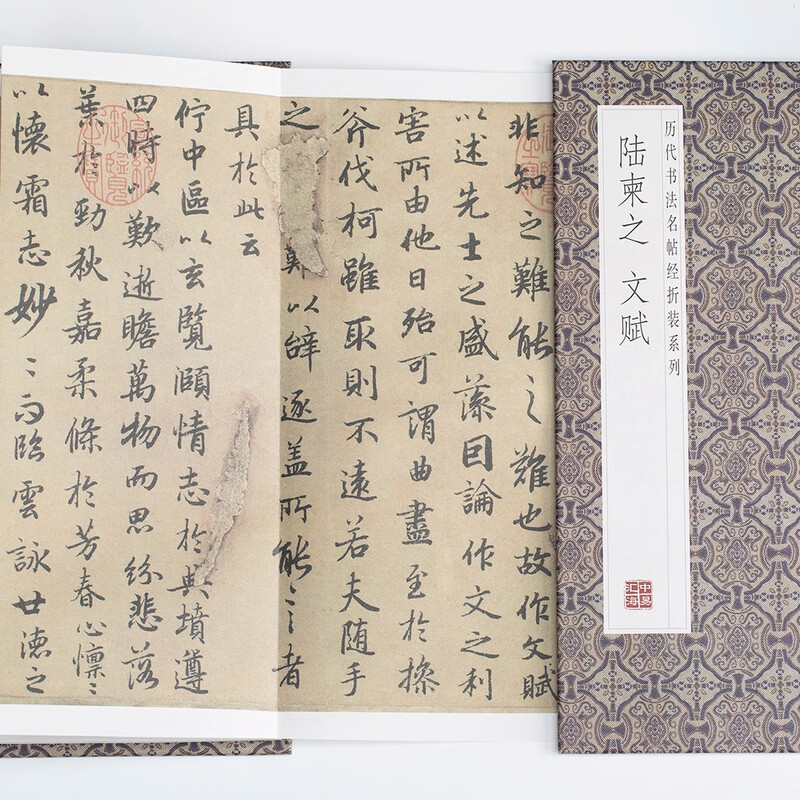 历代书法名帖经折装系列
陆柬之 文赋
中易汇海
非知之難能之難也故作文賦
以述先士之盛藻因論作文之利
害所由他日殆可謂曲盡至於操
斧伐柯雖取則不遠若夫随手
之難以辝逐盖所能言者
具於此云
佇中區以玄覽頤情志於典墳遵
四時以歎逝瞻萬物而思紛悲落
葉於勁秋嘉柔條於芳春心懍〻
以懷霜志妙〻而臨雲詠世德之